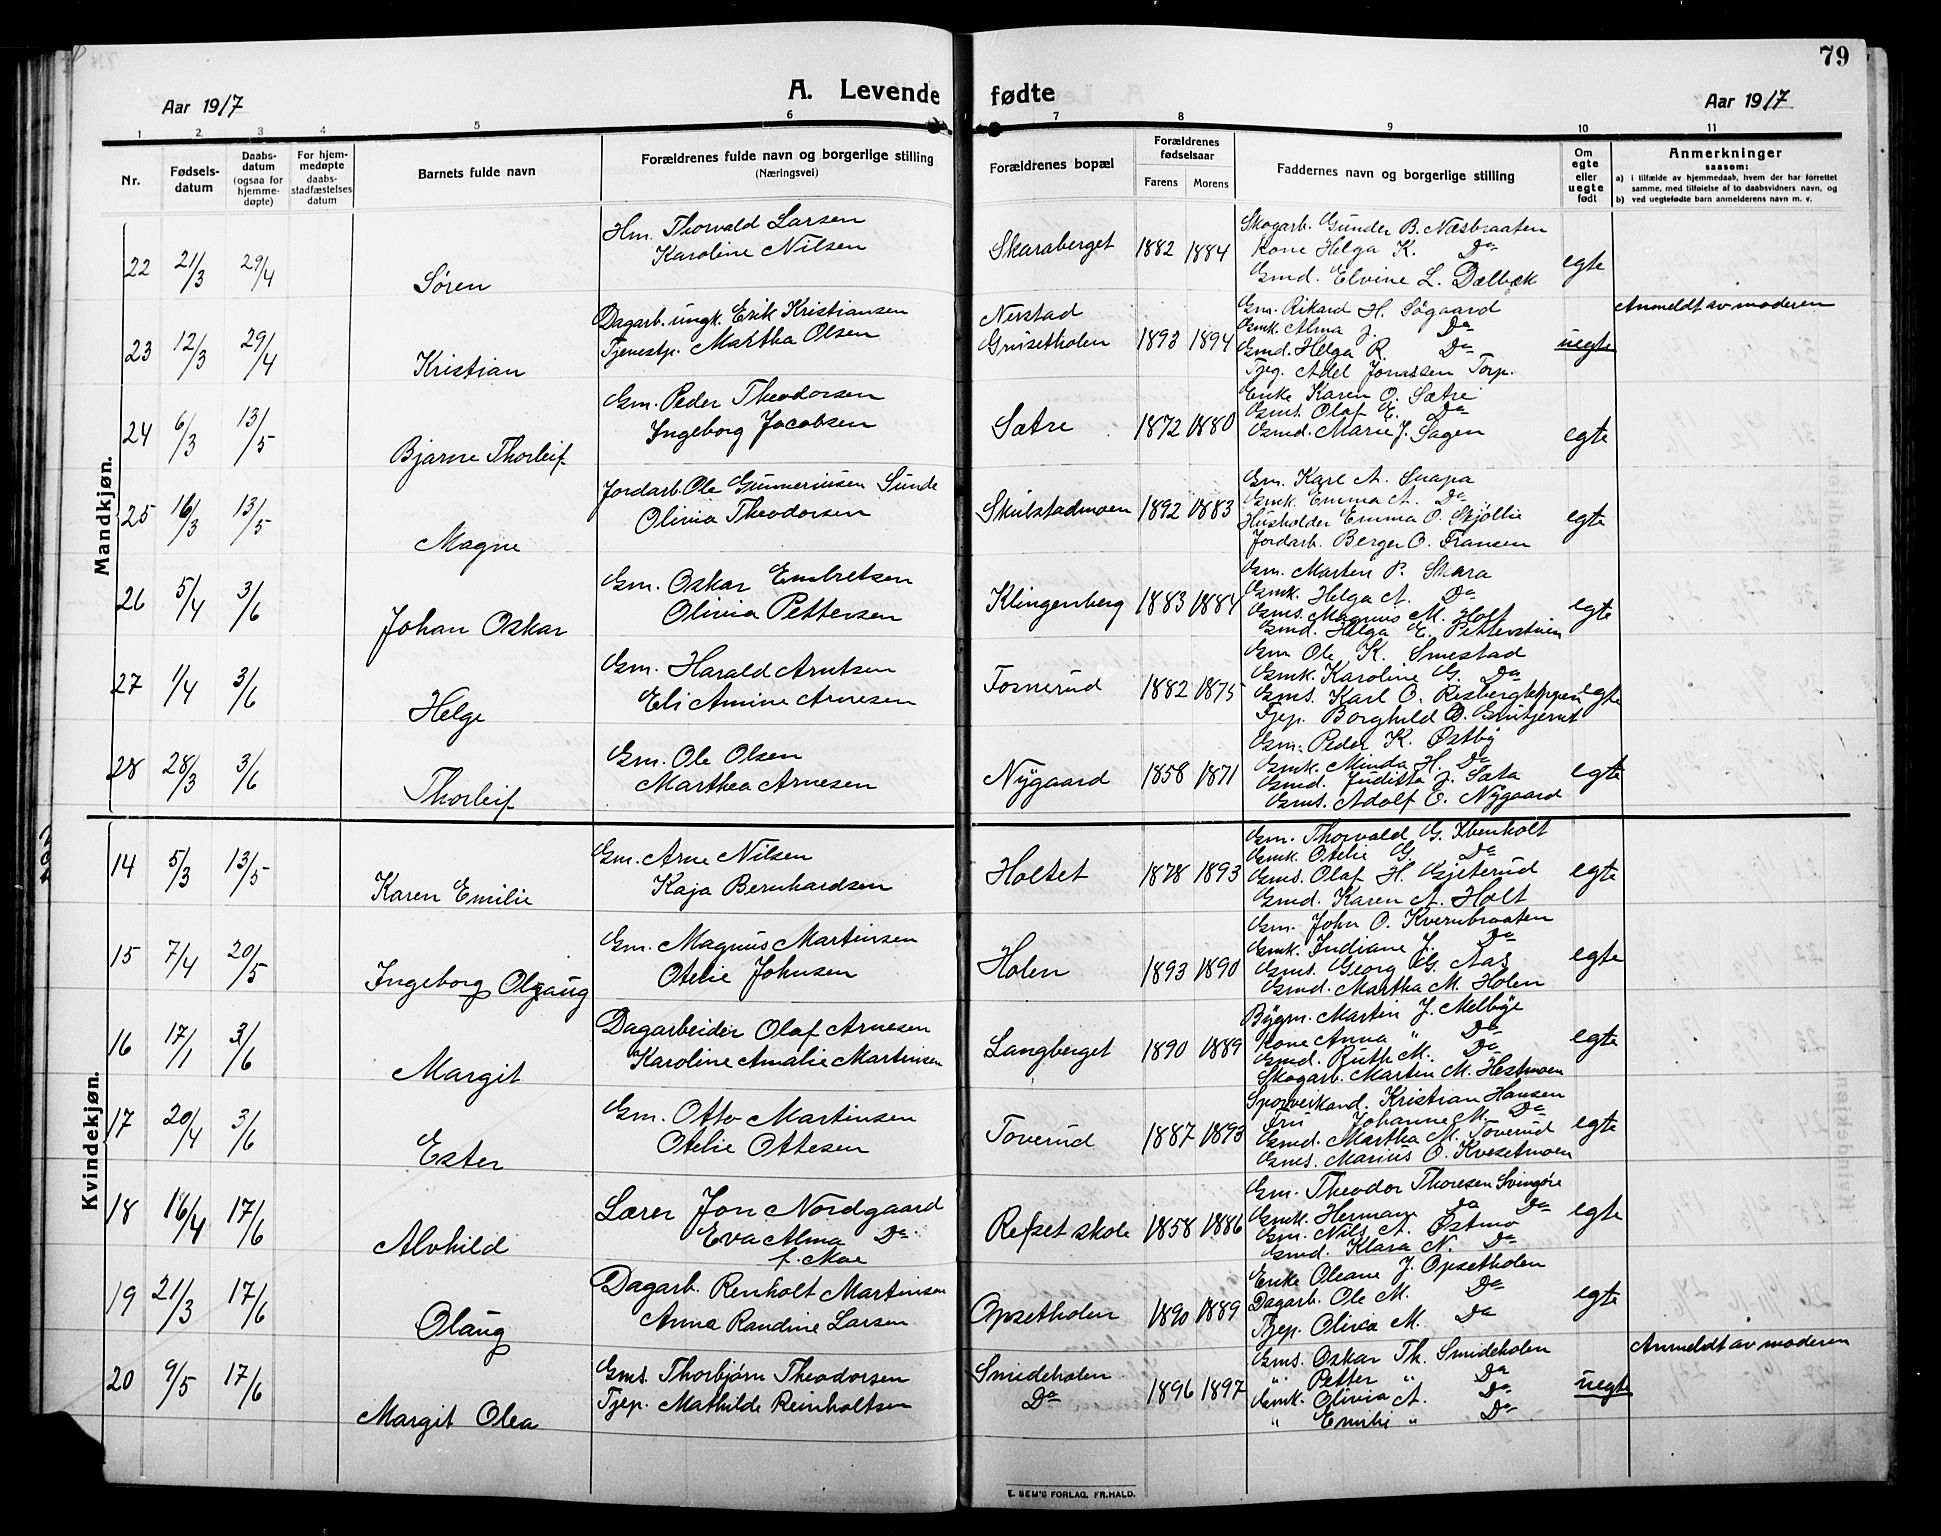 79
Aar 1917
A. Levende fødte
Aar 1917
1 2 3 4 5 6 7 8 9 10 11
Nr.
Fødsels-
datum
Daabs-
datum
(ogsaa for
hjemme-
døpte)
For hjem-
medøpte
daabs-
stadfæstelses
datum
Barnets fulde navn
Forældrenes fulde navn og borgerlige stilling
(Næringsvei)
Forældrenes bopæl
Forældrenes
fødselsaar
Farens Morens
Faddernes navn og borgerlige stilling
Om
egte
eller
uegte
født
Anmerkninger
saasom:
a) i tilfælde av hjemmedaab, hvem der har forrettet
samme, med tilføielse af to daabsvidners navn, og
b) ved uegtefødte barn anmelderens navn m. v.
Mandkjøn.
22 21/3 29/4 Søren
Hm. Thorvald Larsen
Karoline Nilsen
Skaraberget 1882 1884
Skogarb. Gunder B. Næsbraaten
Kone Helga K. Do
Gmd. Elvine L. Dælbæk
egte
23 12/3 29/4 Kristian
Dagarb. ungk. Erik Kristiansen
Tjenestp. Martha Olsen
Nerstad
Grusetholen 1893 1894
Gm. Rikard H. Søgaard
Gmk. Alma J. Do
Gmd. Helga R. Do
Tjeg. Adel Jonassen Torp.
uegte
Anmeldt av moderen
24 6/3 13/5 Bjarne Thorleif
Gm. Peder Theodorsen
Ingeborg Jacobsen
Sætre 1872 1880
Enke Karen O. Sætre
Gms. Olaf E. Do
Gmd. Marie J. Sagen
egte
25 16/3 13/5 Magne
Jordarb. Ole Gunneriusen Sunde
Olivia Theodorsen
Skulstadmoen 1892 1883
Gm. Karl A. Snapa
Gmk. Emma A. Do
Husholder Emma O. Skjøllie
Jordarb. Berger O. Fransen
egte
26 5/4 3/6 Johan Oskar
Gm. Oskar Embretsen
Olivia Pettersen
Klingenberg 1883 1884
Gm. Marten P. Skara
Gmk. Helga A. Do
Gms. Magnus M. Holt
Gmd. Helga E. Petterstuen
egte
27 1/4 3/6 Helge
Gm. Harald Arntsen
Eli Amine Arnesen
Tosnerud 1882 1875
Gm Ole K. Smestad
Gmk. Karoline G. Do
Gms. Karl O. Risbergkjeppen
Tjep. Borghild O.
egte
28 28/3 3/6 Thorleif
Gm. Ole Olsen
Marthea Arnesen
Nygaard 1858 1871
Gm. Peder K. Østby
Gmk. Minda H. Do
Gmd. Juditta J. Sata
Gms. Adolf O. Nygaard
egte
Kvindekjøn.
14 5/3 13/5 Karen Emilie
Gm. Arne Nilsen
Kaja Bernhardsen
Holtet 1878 1893
Gm. Thorvald G. Ibenholt
Gmk. Otelie G. Do
Gms. Olaf H. Gjeterud
Gmd. Karen A. Holt
egte
15 7/4 20/5 Ingeborg Olgaug
Gm. Magnus Martinsen
Otelie Johnsen
Holen 1893 1890
Gm. John O. Kvernbraaten
Gmk. Indiane J. Do
Gms. Georg G. Aas
Gmd. Martha M. Holen
egte
16 17/1 3/6 Margit
Dagarbeider Olaf Arnesen
Karoline Amalie Martinsen
Langberget 1890 1889
Bygm. Martin J. Melbye
Kone Anna " Do
Gmd. Ruth M. Do
Skogarb. Martin M. Hestmoen
egte
17 20/4 3/6 Ester
Gm. Otto Martinsen
Otelie Ottesen
Toverud 1887 1893
Sporveikand. Kristian Hansen
Fru Johanne M. Do
Gmd. Martha M. Toverud
Gms. Marius O. Kvesetmoen
egte
18 16/4 17/6 Alvhild
Lærer Jon Nordgaard
Eva Alma Do
f. Moe
Refset skole 1858 1886
Gm. Theodor Thoresen Svingøre
Gmk. Hermane Do Do
Gm. Nils A. Østmo
Gmd. Klara N. Do
egte
19 21/3 17/6 Olaug
Dagarb. Renholt Martinsen
Anna Randine Larsen
Opsetholen 1890 1889
Enke Oleane J. Opsetholen
Dagarb. Ole M. Do
Tjep. Olivia M. Do
egte
20 9/5 17/6 Margit Olea
Gms. Thorbjørn Theodorsen
Tjep. Mathilde Reinholtsen
Smideholen
Do 1896 1897
Gms. Oskar Th. Smideholen
" Petter " Do
Gmk. Olivia A. Do
" Emilie " Do
uegte
Anmeldt av moderen
E. SEM'S FORLAG, FR.HALD.